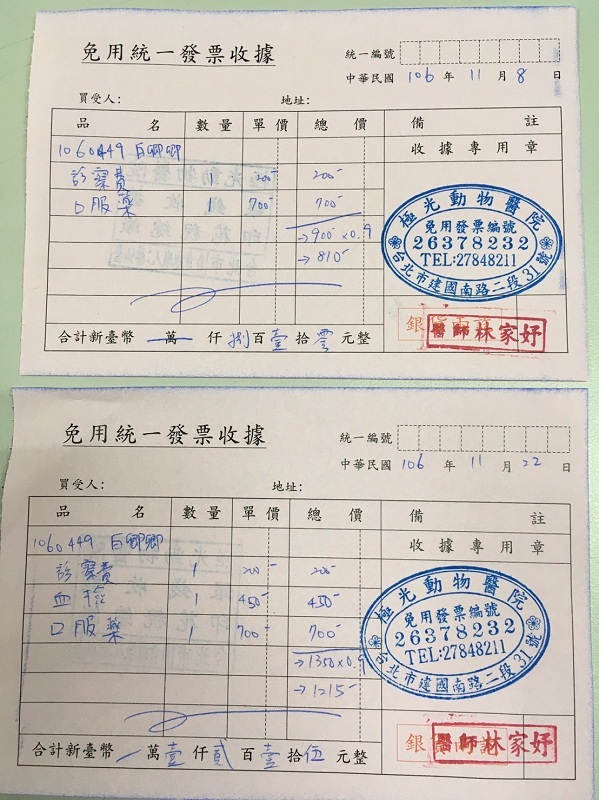 免用統一發票收據
統一編號
中華民國 106 年 11 月 8 日
買受人: 地址:
品名 數量 單價 總價 備註
1060449 白唧唧 收據專用章
診察費 1 200 200
口服藥 1 700 700
→900×0.9
→810
極光動物醫院
免用發票編號
26378232
TEL:27848211
台北市建國南路二段31號
醫師林家妤
合計新臺幣 萬 仟 捌 百 壹 拾 零 元整
免用統一發票收據
統一編號
中華民國 106 年 11 月 22 日
買受人: 地址:
品名 數量 單價 總價 備註
1060449 白唧唧 收據專用章
診察費 1 200 200
血檢 1 450 450
口服藥 1 700 700
→1350×0.9
→1215
極光動物醫院
免用發票編號
26378232
TEL:27848211
台北市建國南路二段31號
醫師林家妤
合計新臺幣 萬 壹 仟 貳 百 壹 拾 伍 元整